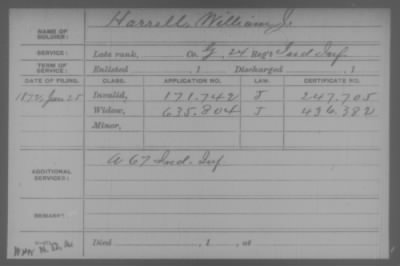 NAME OF SOLDIER: Harrell, William J.
SERVICE: Late rank, Co. G, 24 Reg't Ind Inf
TERM OF SERVICE: Enlisted , 1 Discharged , 1
DATE OF FILING. CLASS. APPLICATION NO. LAW. CERTIFICATE NO.
1872, Jan 25 Invalid, 171.742 J 247.705
Widow, 635.804 J 436.382
Minor,
ADDITIONAL SERVICES: A 67 Ind. Inf.
REMARKS:
Died , 1 , at